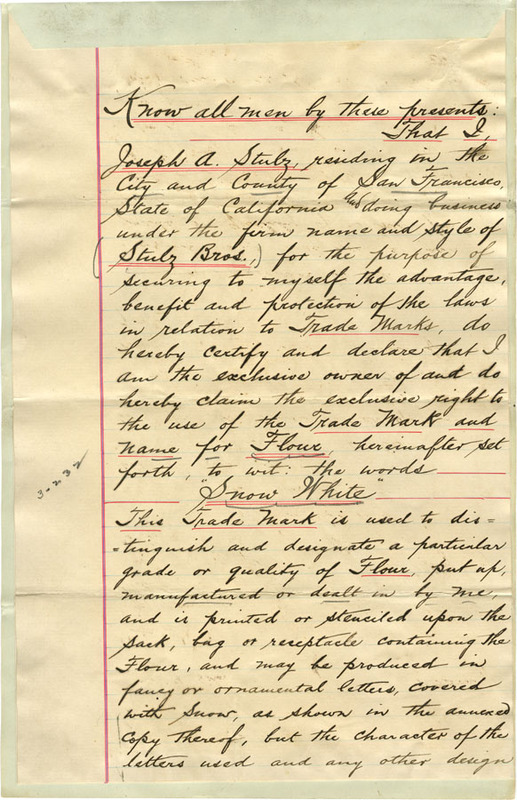 Know all men by these presents:
That I,
Joseph A. Stulz, residing in the
City and County of San Francisco,
State of California and doing business
under the firm name and style of
(Stulz Bros.,) for the purpose of
securing to myself the advantage,
benefit and protection of the laws
in relation to Trade Marks, do
hereby certify and declare that I
am the exclusive owner of and do
hereby claim the exclusive right to
the use of the Trade Mark and
name for Flour, hereinafter set
forth, to wit: the words
"Snow White"
This Trade Mark is used to dis=
=tinguish and designate a particular
grade or quality of Flour, put up,
manufactured or dealt in by me,
and is printed or stenciled upon the
sack, bag or receptacle containing the
Flour, and may be produced in
fancy or ornamental letters, covered
with Snow, as shown in the annexed
copy thereof, but the character of the
letters used and any other design
3-232